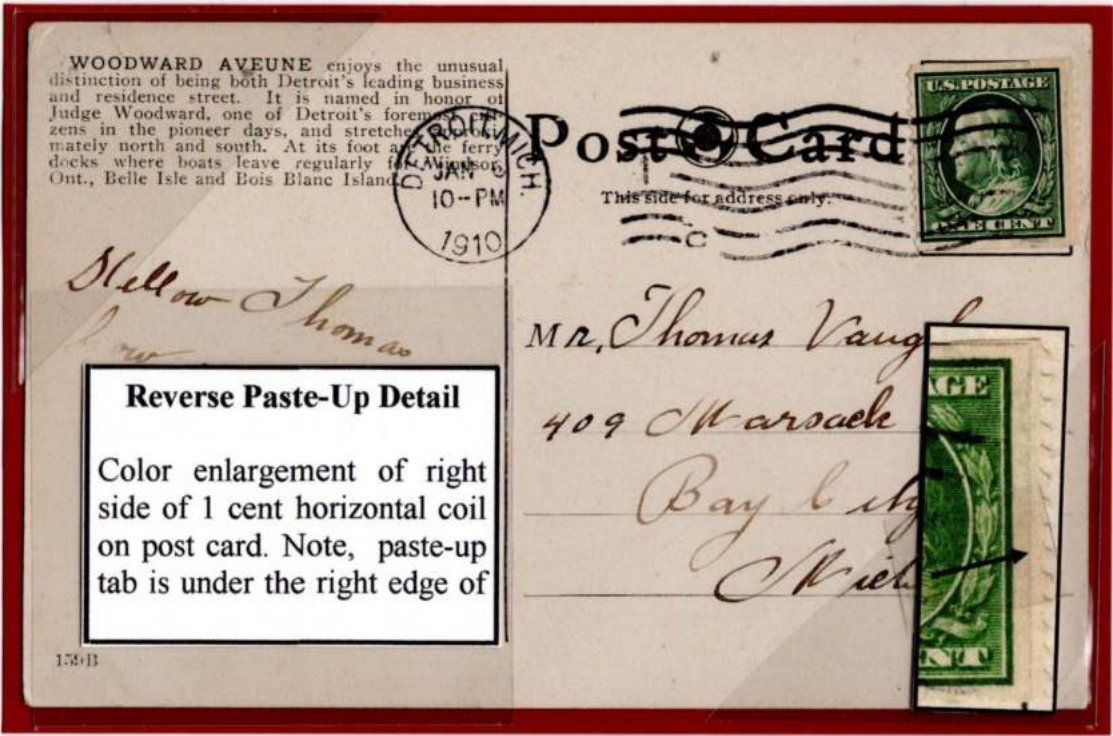 WOODWARD AVEUNE enjoys the unusual
distinction of being both Detroit's leading business
and residence street. It is named in honor of
Judge Woodward, one of Detroit's foremost
zens in the pioneer days, and stretches
mately north and south. At its foot are the ferry
docks where boats leave regularly for Windsor,
Ont., Belle Isle and Bois Blanc Island.
DETROIT, MICH.
JAN
10-PM
1910
Post Card
This side for address only.
U.S. POSTAGE
CENT
Hellow Thomas
Mr, Thomas Vaug
409 Marsack
Bay City
Mich
Reverse Paste-Up Detail
Color enlargement of right
side of 1 cent horizontal coil
on post card. Note, paste-up
tab is under the right edge of
AGE
ENT
159B